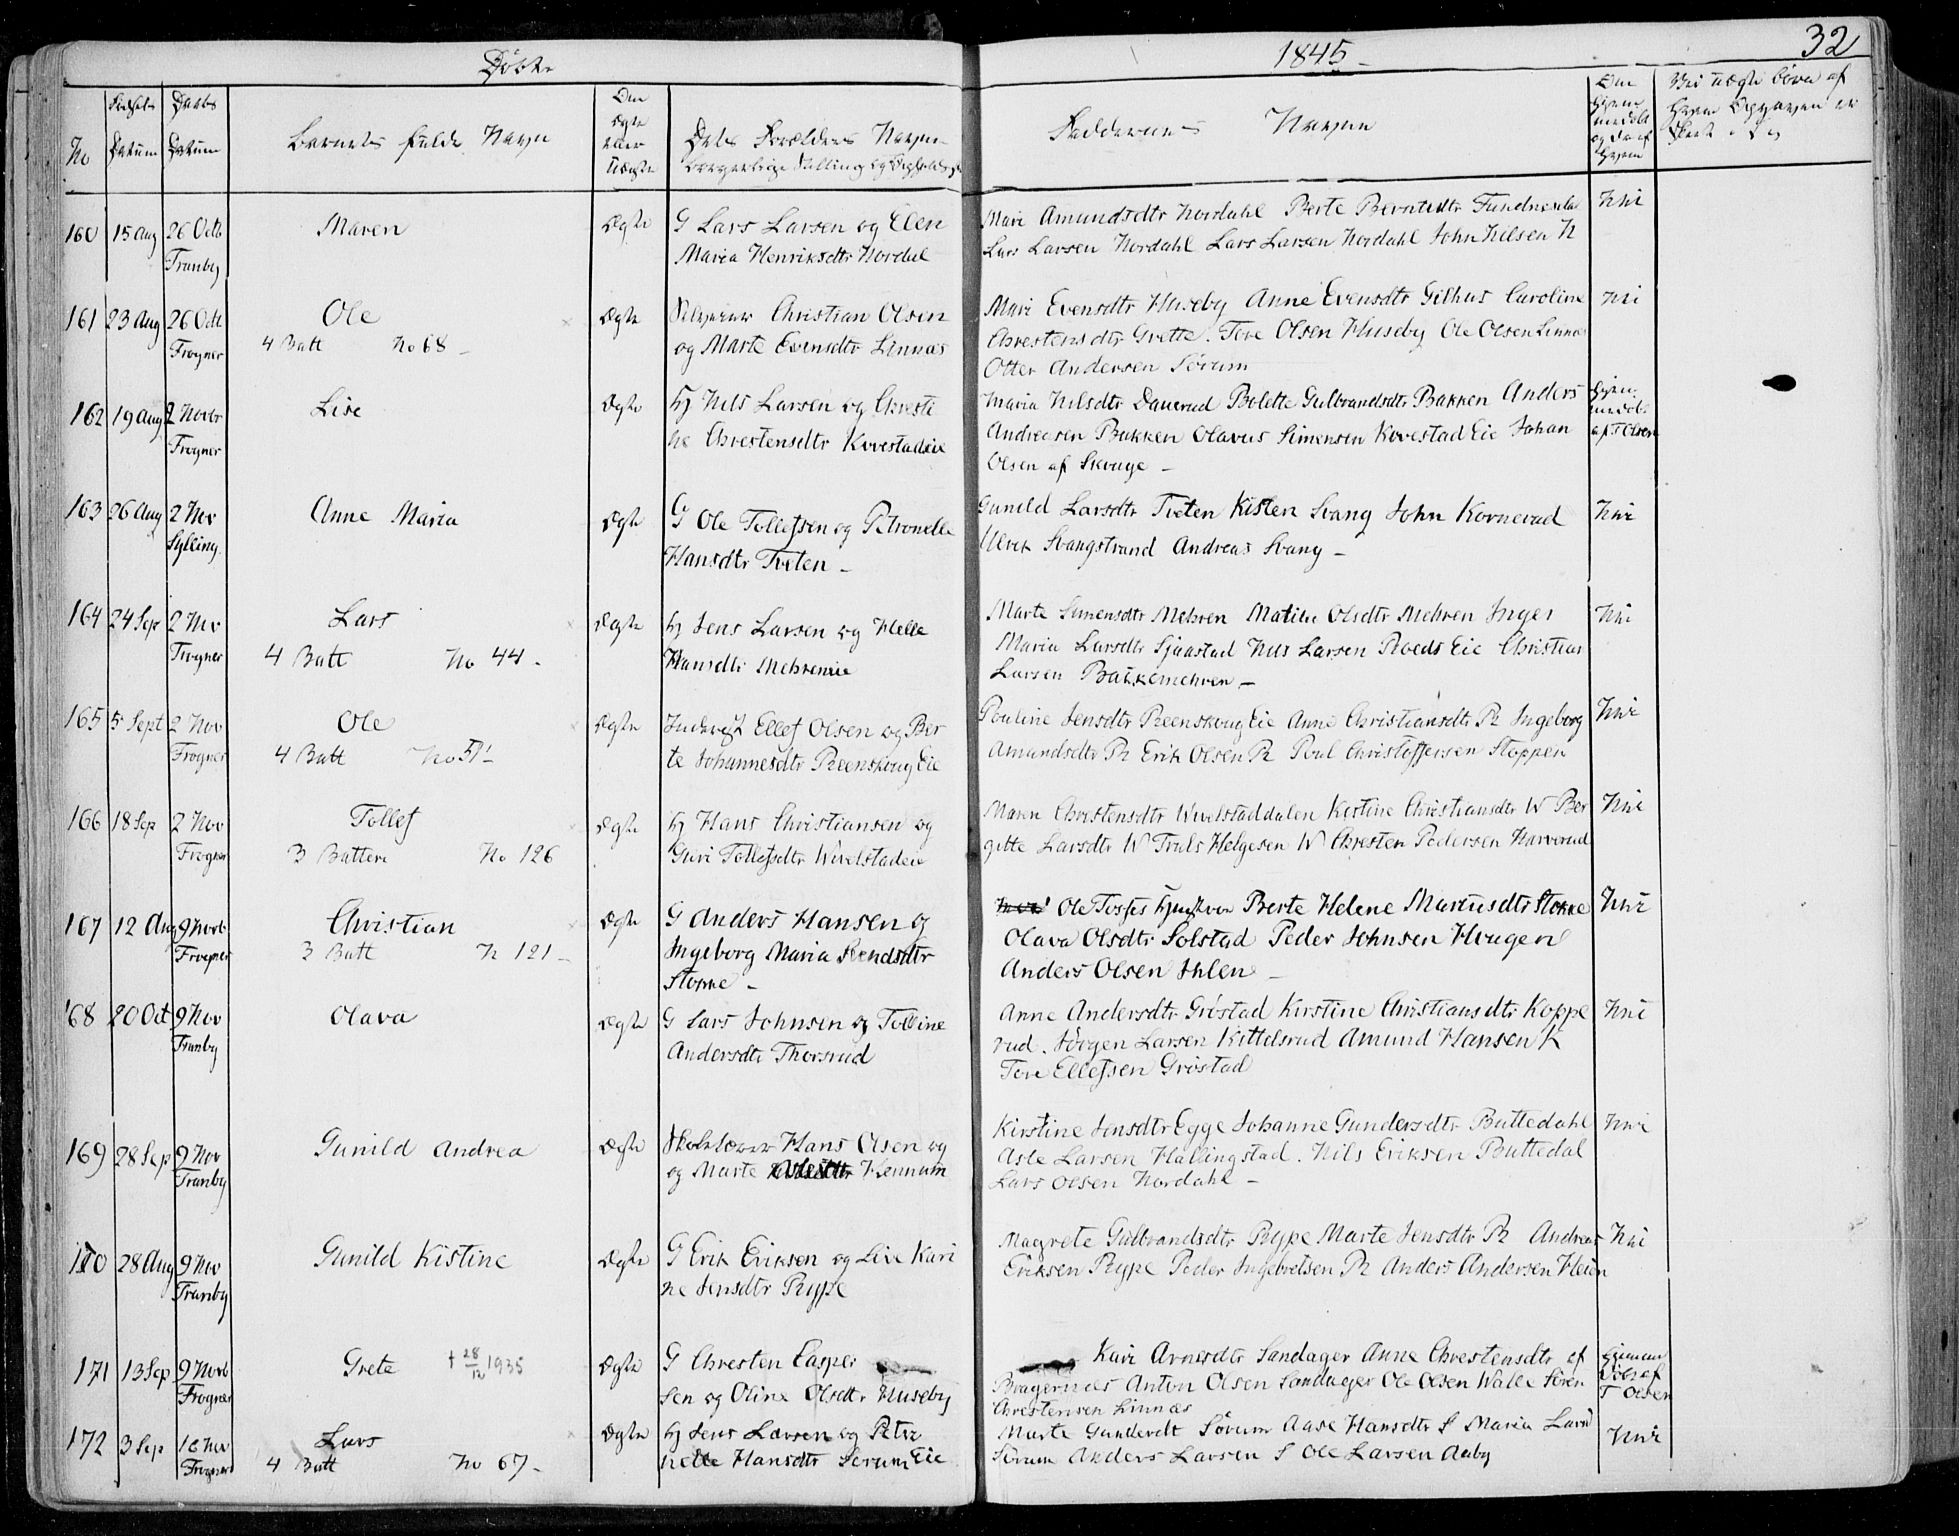 Døbte 1845 - 32
No
Fødsels Datum
Daabs Datum
Barnets fulde Navn
Den ægte eller uægte
Dets Forældres Navne
borgerlige Stilling og
Faddernes Navne
Om hjemmedøbt og da af hvem
Ved uægte børn af
160 15 Aug 26 Octb Tranby
Maren
Ægte
G Lars Larsen og Elen
Maria Henriksdtr Nordal
Mari Amundsdtr Nordahl Berte Berntsdtr
Lars Larsen Nordahl Lars Larsen Nordahl John Nilsen N
Nei
161 23 Aug 26 Octb Frogner
Ole
4 Batt No 68 -
Ægte
Christian Olsen
og Marte Evensdtr Linnæs
Mari Evensdtr Huseby Anne Evensdtr Gilhus Caroline
Chrestensdtr Grette. Tore Olsen Huseby Ole Olsen Linnæs
Otter Andersen Sørum
Nei
162 19 Aug 2 Novbr Frogner
Lise
Ægte
Hj Nils Larsen og Christi
ne Chrestensdtr Kovestadeie
Maria Nilsdtr Dauerud Bolette Gulbrandsdtr Bakken Anders
Andreasen Bakken Olavus Simensen Kovestad Eie Johan
Olsen af Skouge -
Hjemmedøbt af T Olsen
163 26 Aug 2 Nov Sylling
Anne Maria
Ægte
G Ole Tollefsen og Petronelle
Hansdtr Tveten -
Gunild Larsdtr Tveten Kisten Svang John Kornerud
Ulrik Svangstrand Andreas Svang -
Nei
164 24 Sep 2 Nov Frogner
Lars
4 Batt No 44 -
Ægte
Hj Jens Larsen og Helle
Hansdtr Mehreneie
Marte Simensdtr Mehren Matilde Olsdtr Mehren Inger
Maria Larsdtr Sjaastad Nils Larsen Roeds Eie Christian
Larsen Bakkemehren -
Nei
165 5 Sept 2 Nov Frogner
Ole
4 Batt No 51 -
Ægte
Inderst Ellef Olsen og Ber
te Johannesdtr Reenskoug Eie
Pouline Jensdtr Reenskoug Eie Anne Christiansdtr R Ingeborg
Amundsdtr R Erik Olsen R Poul Christoffersen Stoppen
Nei
166 18 Sep 2 Nov Frogner
Tollef
3 Batteri No 126
Ægte
Hj Hans Christiansen og
Guri Tollefsdtr Wivelstadeie
Maren Christensdtr Wivelstaddalen Kistine Christiansdtr W Ber
gitte Larsdtr W Truls Helgesen W Chresten Pedersen Narverud
Nei
167 12 Aug 9 Novb Frogner
Christian
3 Batt N 121 -
Ægte
G Anders Hansen og
Ingeborg Maria Svendsdtr
Stokke -
Ole Tosses Hustroe Berte Helene Mariusdtr Stokke
Olava Olsdtr Solstad Peder Johnsen Hougen
Anders Olsen Ihlen -
Nei
168 20 Oct 9 Nov Tranby
Olava
Ægte
G Lars Johnsen og Tolline
Andersdtr Thorsrud
Anne Andersdtr Grøstad Kirstine Christiansdtr Koppe
rud. Jørgen Larsen Kittelsrud Amund Hansen K
Tore Ellefsen Grøstad
Nei
169 28 Sep 9 Nov Tranby
Gunild Andrea
Ægte
Skolelærer Hans Olsen og
og Marte Hennum
Kirstine Jensdtr Egge Johanne Gundersdtr Buttedahl
Asle Larsen Hallingstad. Nils Eriksen Buttedal
Lars Olsen Nordahl -
Nei
170 28 Aug 9 Nov Tranby
Gunild Kistine
Ægte
G Erik Eriksen og Live Kari
ne Jensdtr Rype
Magrete Gulbrandsdtr Rype Marte Jensdtr R Andreas
Eriksen Rype Peder Ingebretsen R Anders Andersen Heien
Nei
171 13 Sep 9 Novb Frogner
Grete † 28/12 1935
Ægte
G Chresten Casper
sen og Oline Olsdtr Huseby
Kari Arnesdtr Sandager Anne Chrestensdtr af
Bragernæs Anton Olsen Sandager Ole Olsen Walle Søren
Chrestensen Linnæs
Hjemmedøbt af T Olsen
172 3 Sep 16 Nov Frogner
Lars
4 Batt No 67 -
Ægte
Hj Jens Larsen og Petro
nelle Hansdtr Sørum Eie
Marte Gundersdt Sørum Aase Hansdtr S Maria Larsd
Sørum Anders Larsen S Ole Larsen Aaby
Nei